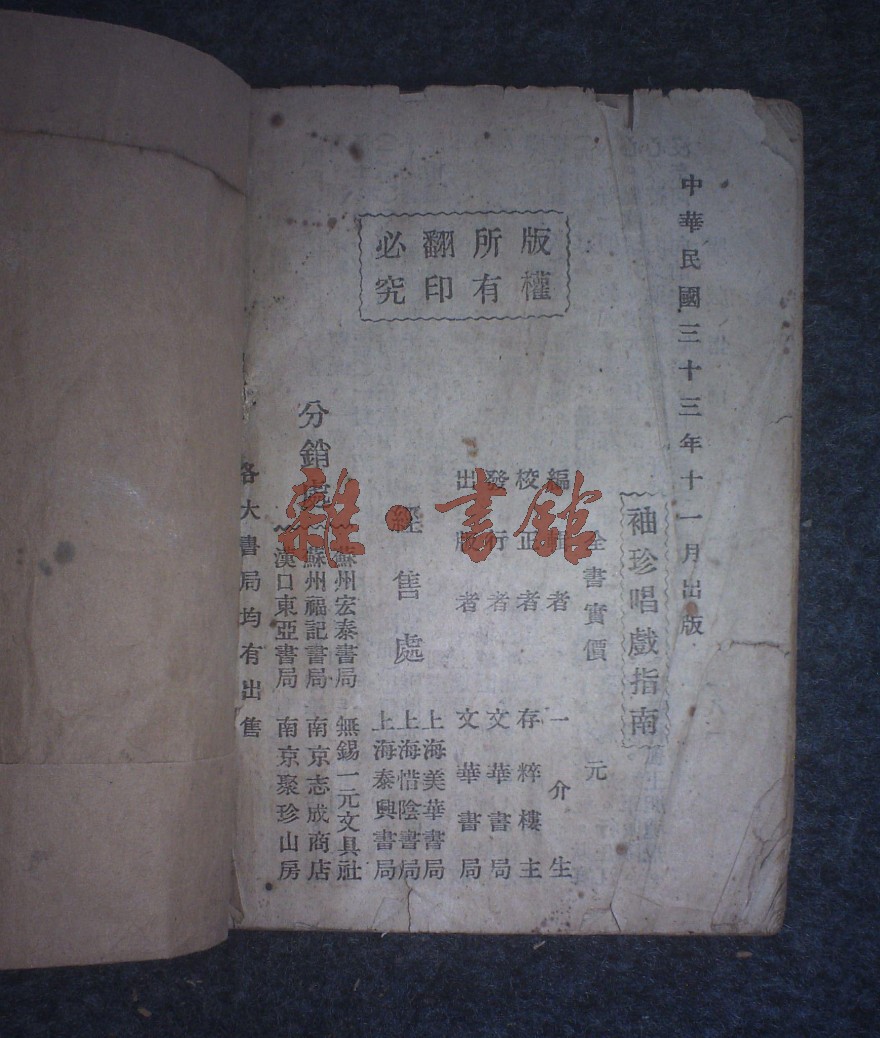 中華民國三十三年十一月出版
袖珍唱戲指南
全書實價 元
編輯者 一介生
校正者 存粹樓主
發行者 文華書局
出版者 文華書局
經售處
上海美華書局
上海惜陰書局
上海泰興書局
版權所有翻印必究
分銷處
蘇州宏泰書局 無錫一元文具社
蘇州福記書局 南京志成商店
漢口東亞書局 南京聚珍山房
各大書局均有出售
雜·書館